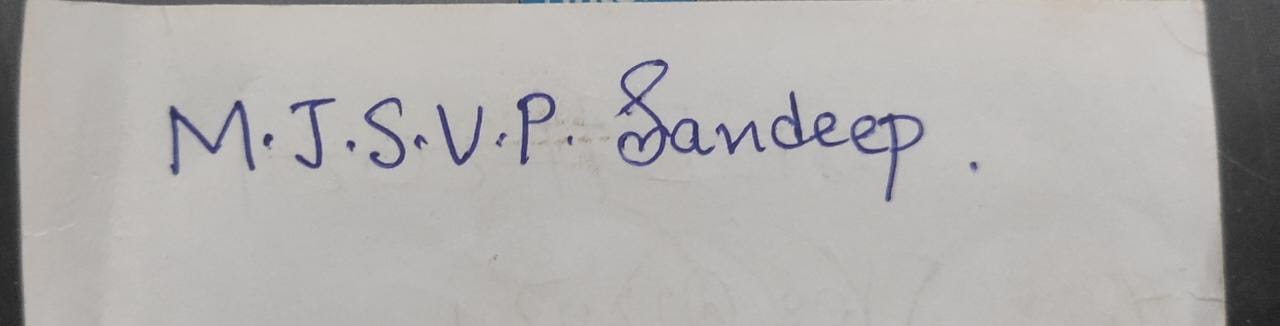 M.J.S.V.P. Sandeep.